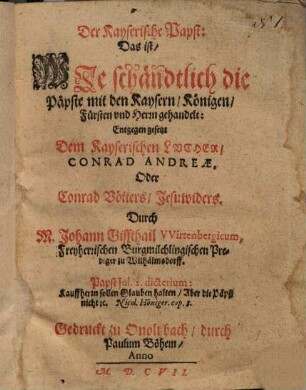 Der Kayserische Papst:
Das ist/
WIe schändtlich die
Päpste mit den Kaysern/ Königen/
Fürsten vnd Herrn gehandelt:
Entgegen gesetzt
Dem Kayserischen LVTHER/
CONRAD ANDREÆ.
Oder
Conrad Vötters/ Jesuwiders.
Durch
M. Johann Giffthail VVirtenbergicum,
Freyherrischen Burgmilchlingischen Pre-
diger zu Wilhälmsdorff.
Papst Jul. 2. dicterium:
Kauffherrn sollen Glauben halten/ Aber die Päpst
nicht ꝛc. Nicol. Höniger. cap. 8.
Gedruckt zu Onoltzbach/ durch
Paulum Böhem/
Anno
M. D. C VII.